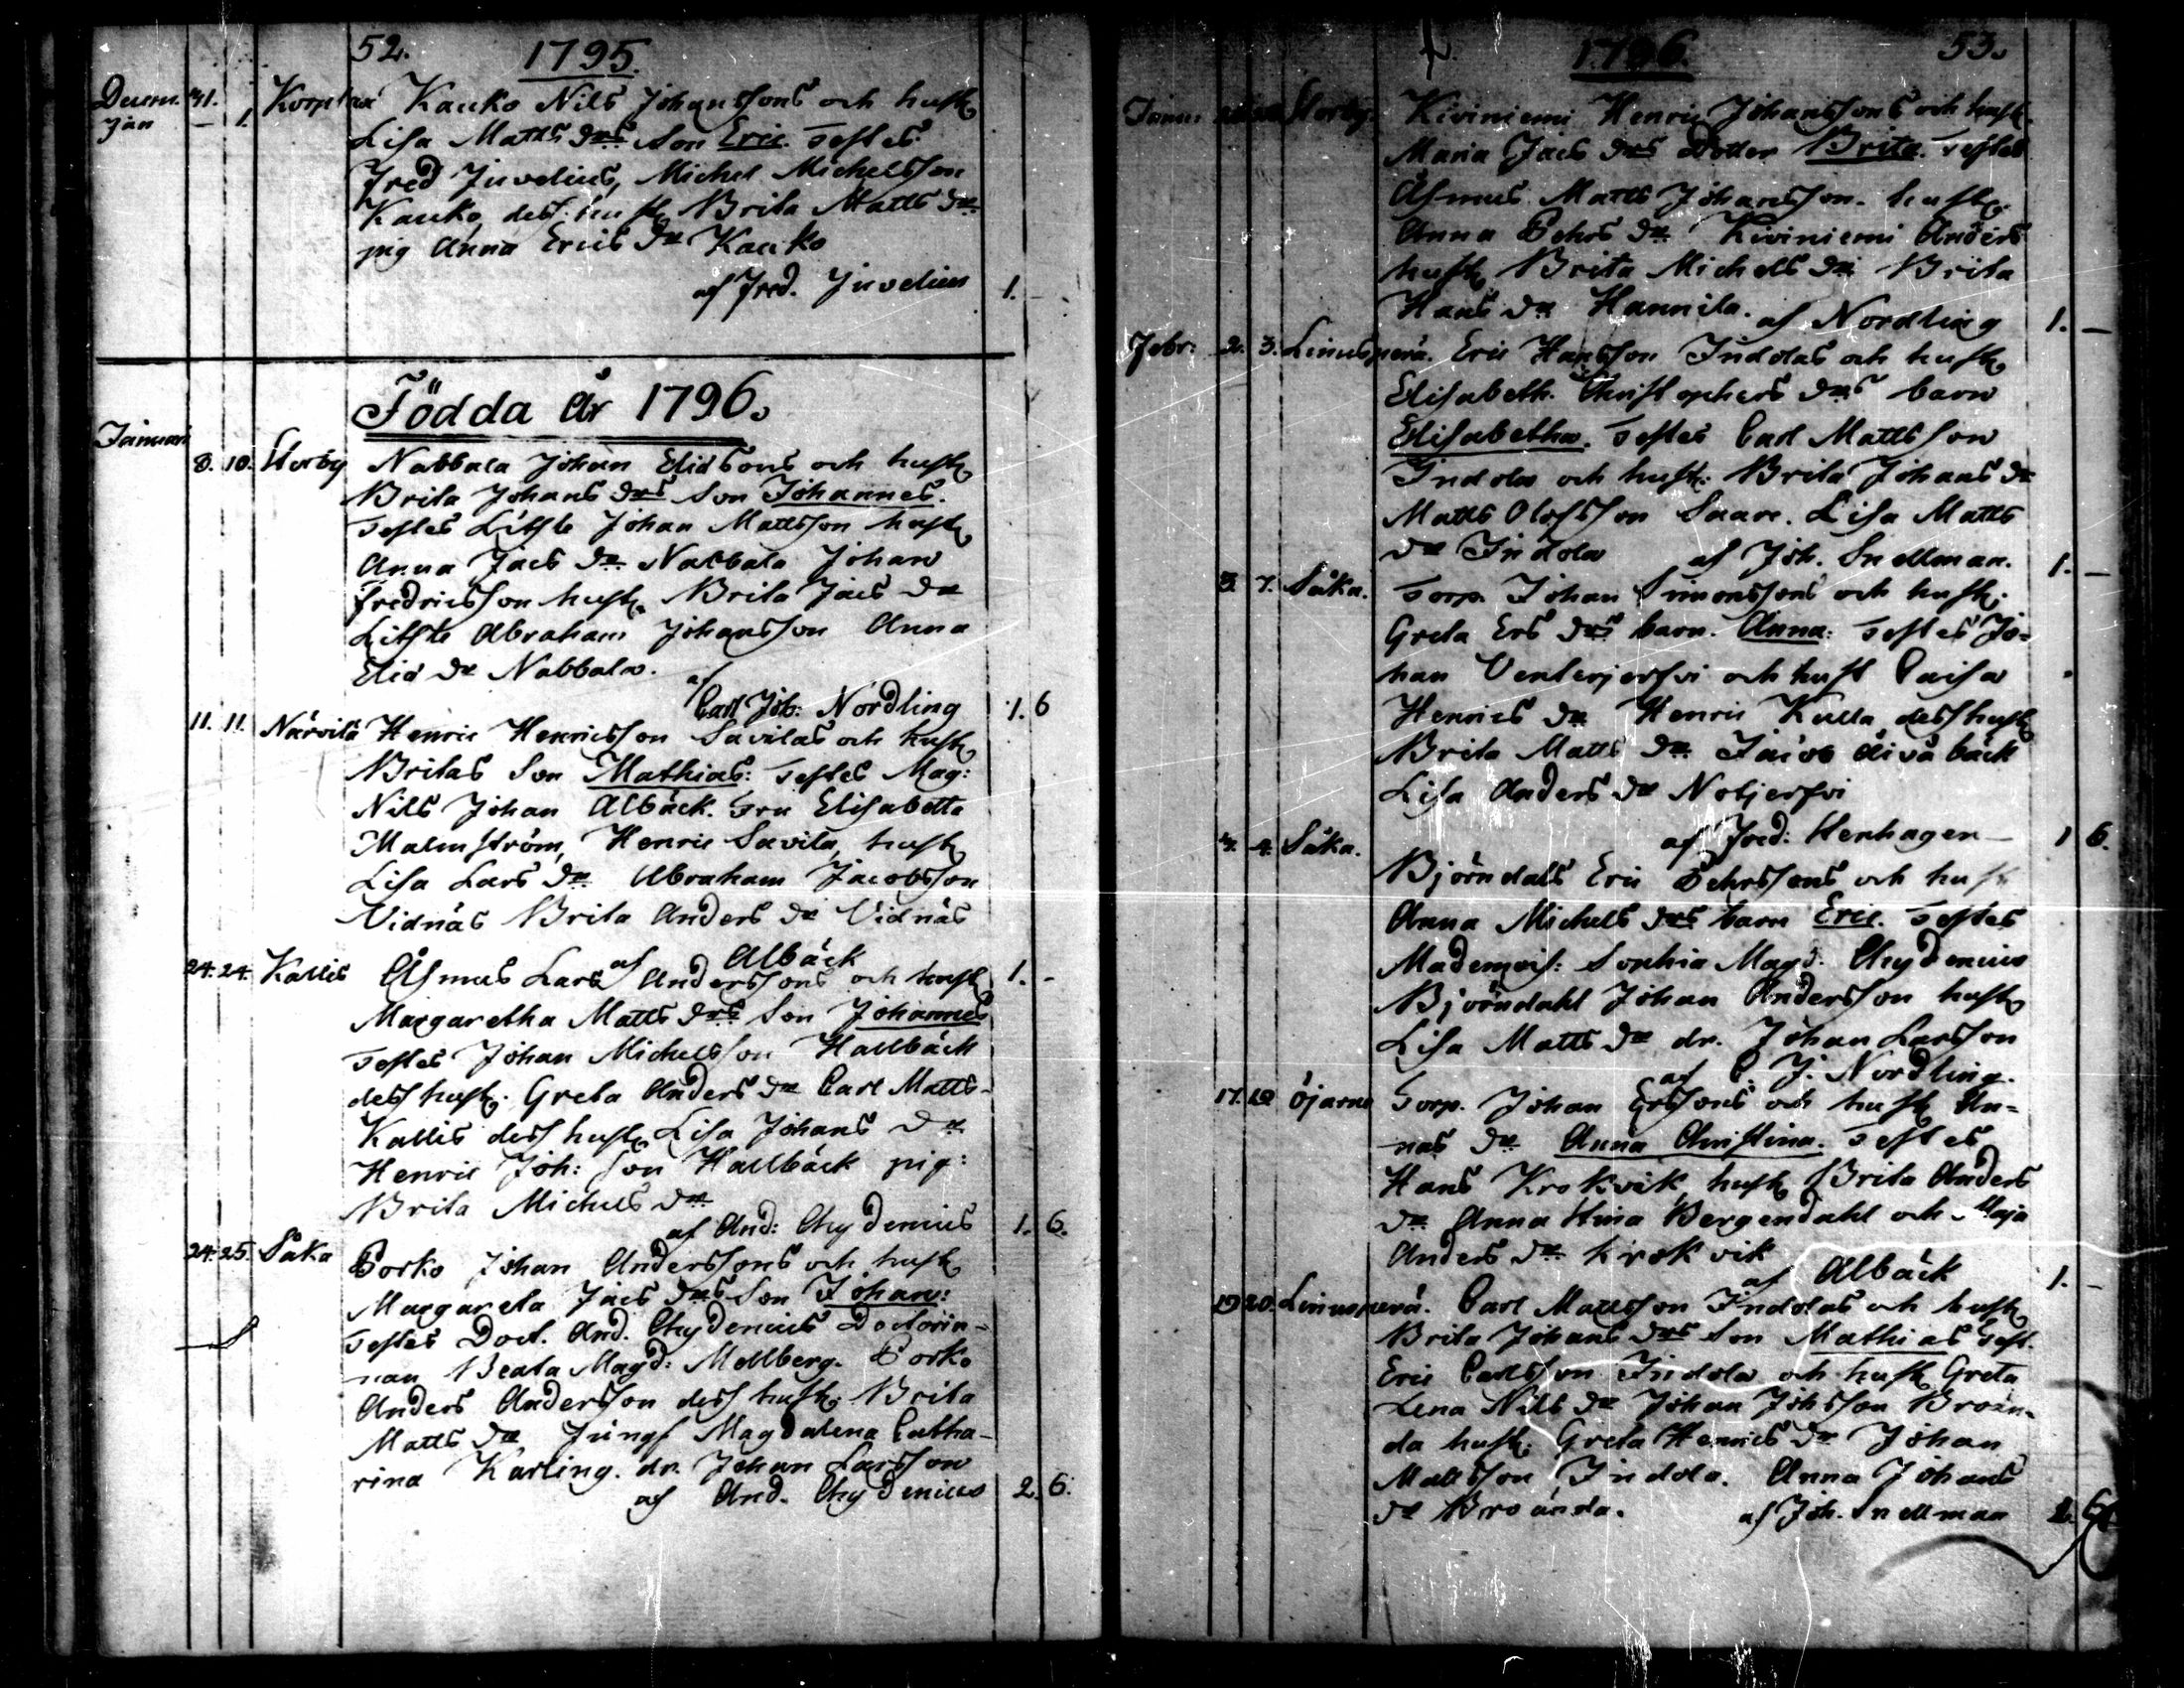 52. 1795.
Decem. 31. Korplax Kauko Nils Johanssons och hust:
Jan — 1. Lisa Matts drs Son Eric. Testes
Fred Juvelius, Michel Michelsson
Kauko, dess hust: Brita Matts dr
pig Anna Erics dr Kauko
af Fred. Juvelius 1. —
Födda År 1796.
Januari
8. 10. Storby Nabbala Johan Elidsons och hust:
Brita Johans drs Son Johannes.
Testes Litsle Johan Mattsson hust:
Anna Jacs dr Nabbala Johan
Fredricsson hust. Brita Jacs dr
Litsle Abraham Johansson Anna
Elid dr Nabbala.
af Carl Joh: Nordling 1. 6
11. 11. Närvilä Henric Henricsson Savilas och hust:
Britas Son Mathias: Testes Mag:
Nils Johan Albäck. Fru Elisabetta
Malmström, Henric Savila, hust:
Lisa Lars dr Abraham Jacobsson
Vidnäs Brita Anders dr Vidnäs
af Albäck 1. -
24. 24. Kallis Åsmus Lars Anderssons och hust:
Margaretha Matts drs Son Johannes
Testes Johan Michelsson Hallbäck
dess hust: Greta Anders dr Carl Matts-
Kallis dess hust: Lisa Johans dr
Henric Joh: son Hallbäck pig:
Brita Michels dr
af And: Chydenius 1. 6.
24. 25. Såka Porko Johan Anderssons och hust:
Margareta Jacs drs Son Johan:
Testes Doct. And. Chydenius Doctorin-
nan Beata Magd: Mellberg. Porko
Anders Andersson dess hust: Brita
Matts dr, Jungf Magdalena Catha-
rina Karling. dr. Johan Larsson
af And. Chydenius 2. 6.
1796. 53.
Janu: Storby. Kiviniemi Henric Johanssons och hust:
Maria Jacs drs Dotter Brita. Testes
Åsmus Matts Johansson. hust:
Anna Pehrs dr Kiviniemi Anders
hust: Brita Michels dr Brita
Hans dr Hannila. af Nordling 1. —
Febr: 2. 3. Linusperä. Eric Hansson Indolas och hust:
Elisabeth. Christophers drs barn
Elisabetha. Testes Carl Mattsson
Indola och hust: Brita Johans dr
Matts Olofsson Saare. Lisa Matts
dr Indola af Joh. Snellman. 1. —
3. 7. Såka. Torp. Johan Simonssons och hust:
Greta Ers drs barn. Anna: Testes Jo-
han Venterjerfvi och hust Caisa
Henrics dr Henric Kulla dess hust:
Brita Matts dr Jacob Åivå back
Lisa Anders dr Notjerfvi
af Fred: Henhagen — 1 6.
4. 4. Såka. Björndals Eric Pehrssons och hust
Anna Michels drs barn Eric. Testes
Mademois: Sophia Magd. Chydenius
Björndahl Johan Andersson hust:
Lisa Matts dr dr. Johan Larsson
af C J. Nordling.
17. 18 Öjarne Torp. Johan Erssons och hust: An-
nas dr Anna Christina. Testes
Hans Krokvik, hust: Brita Anders
dr Anna Stina Bergendahl och Maja
Anders dr Krokvik
af Albäck 1. -
19 20. Linusperä. Carl Mattsson Indolas och hust:
Brita Johans drs Son Mathias Test.
Eric Carlsson Indola och hust: Greta
Lena Nils dr Johan Johsson Broän-
da hust: Greta Henrics dr Johan
Mattsson Indola. Anna Johans
dr Broända. af Joh. Snellman 6